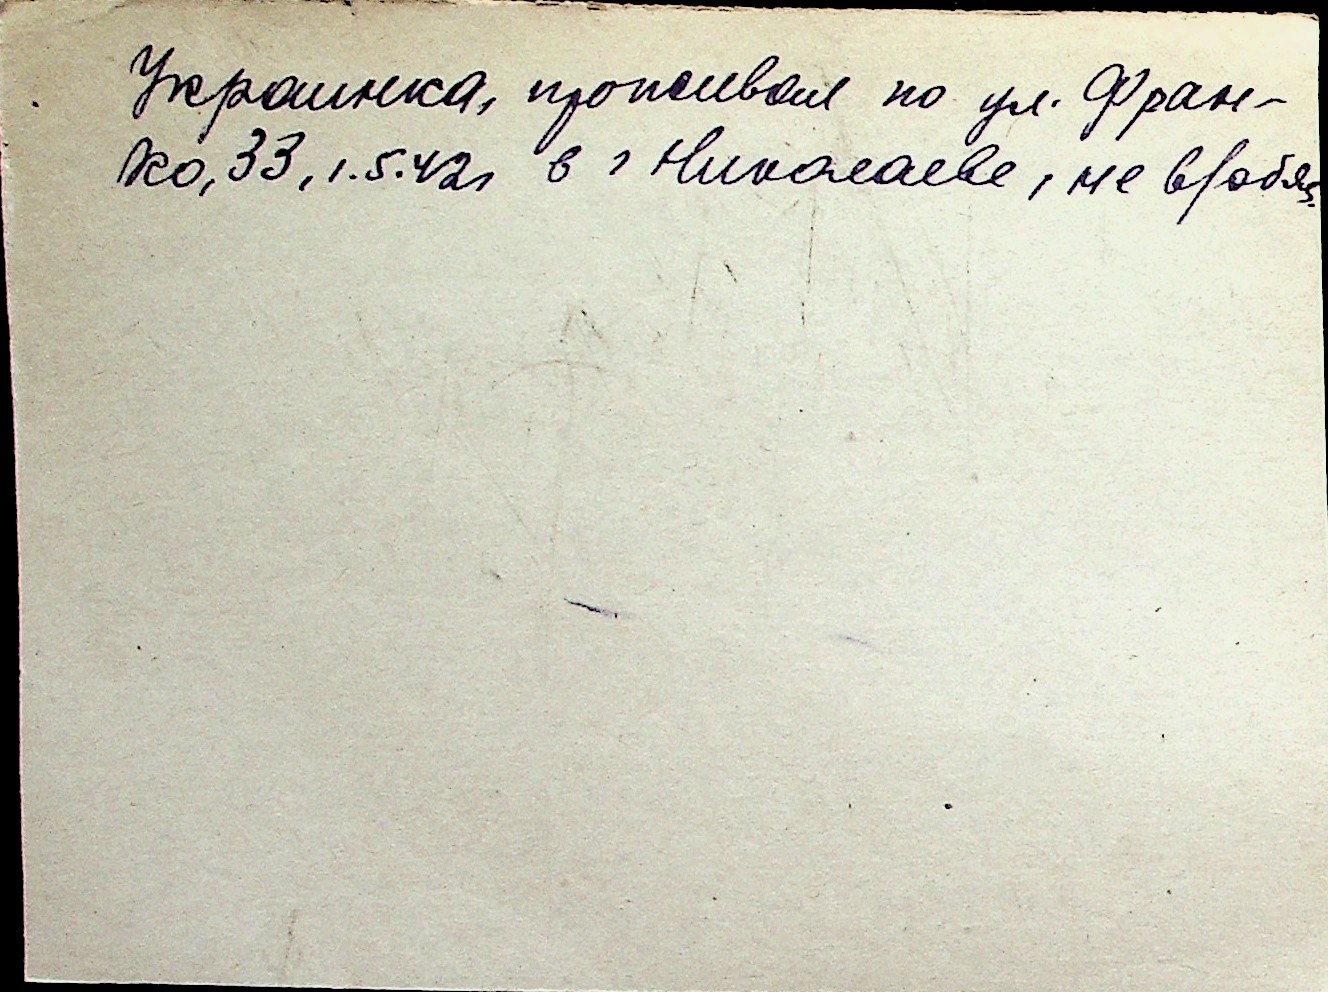 Украинка, проживал по ул. Фран-
ко, 33, 1.5.42г в г Николаеве, не